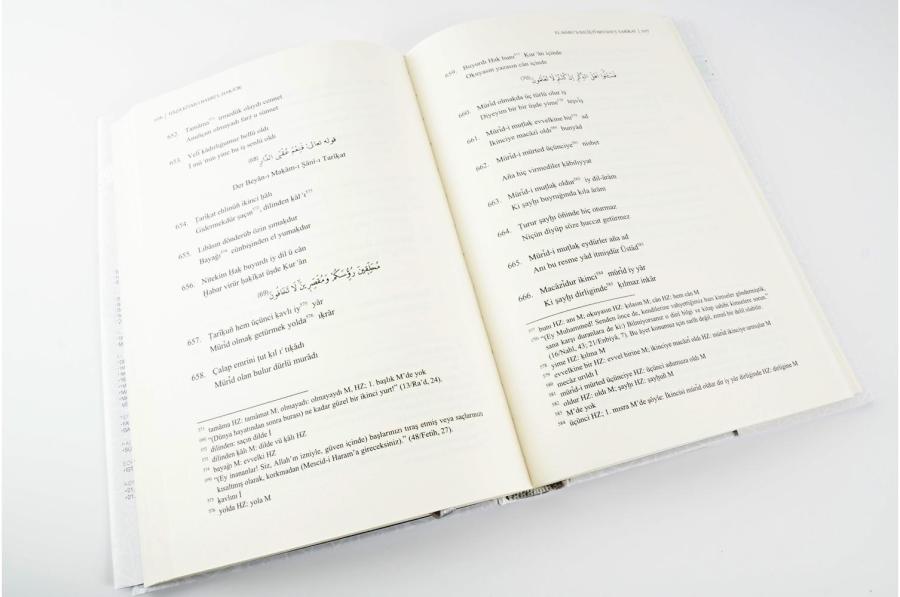 652. Tamâma irmedük olaydı cennet
Anuñçun olmayadı farż u sünnet
653. Velî kâdirlıgumuz bellü oldı
İ mü'min yine bu iş senlü oldı
قوله تعالى: فَنِعْمَ عُقْبَى الدَّارِ (68)
Der Beyân-ı Maḳam-ı Sânî-i Tarîḳat
654. Tarîḳat ehlinüñ ikinci hâli
Gidermekdür saçın, dilinden ḳâl'i
655. Libâsın dönderüb özin sımaḳdur
Bayağı cünbişinden el yumaḳdur
656. Nitekim Ḥaḳ buyurdı iy dil ü cân
Ḫabar virür ḥaḳîḳat üşde Kur'ân
مُحَلِّقِينَ رُؤُسَكُمْ وَمُقَصِّرِينَ لَا تَخَافُونَ (69)
657. Tarîḳuñ hem üçünci ḳavli iy yâr
Mürîd olmaḳ getürmek yolda iḳrâr
658. Çalap emrini ṭut ḳıl i'tiḳâdı
Mürîd olan bulur dürlü murâdı
571 tamâma HZ: tamâmat M, olmayadı: olmayaydı M, HZ; 1. başlık M'de yok
"(Dünya hayatından sonra burası) ne kadar güzel bir ikinci yurt!" (13/Ra'd, 24).
572 dilinden: saçın dilde İ
573 dilinden ḳâli M: dilde vü ḳâli HZ
574 bayağı M: evvelki HZ
"(Ey inananlar! Siz, Allah'ın izniyle, güven içinde) başlarınızı tıraş etmiş veya saçlarınızı
kısaltmış olarak, korkmadan (Mescid-i Haram'a gireceksiniz)." (48/Fetih, 27).
575 ḳavlini İ
576 yolda HZ: yola M
659. Buyurdı Ḥaḳ bunı Kur'ân içinde
Okuyasın yazasın cân içinde
فَسْئَلُوا أَهْلَ الذِّكْرِ إِنْ كُنْتُمْ لَا تَعْلَمُونَ (70)
660. Mürîd olmakda üç türlü olur iş
Diyeyim bir bir üşde yime teşvîş
661. Mürîd-i muṭlaḳ evvelkine hu ad
İkinciye macâzî oldı bunyâd
662. Mürîd-i mürted üçünciye nisbet
Aña hiç virmediler kâbiliyyat
663. Mürîd-i muṭlaḳ oldur iy dil-ârâm
Ki şayḫı buyruğında kıla ârâm
664. Ṭurur şayḫı öñinde hiç oturmaz
Niçün diyüp söze huccat getürmez
665. Mürîd-i muṭlaḳ eydürler aña ad
Anı bu resme yâd itmişdür Üstâd
666. Macâzîdur ikinci mürîd iy yâr
Ki şayḫı dirliginde ḳılmaz inkâr
577 bunı HZ: anı M; okuyasın HZ: kılasın M; cân HZ: hem cân M
"(Ey Muhammed! Senden önce de, kendilerine vahyettiğimiz bazı kimseler göndermiştik,
sana karşı duranlara de ki:) Bilmiyorsanız o dini bilgi ve kitap sahibi kimselere sorun."
(16/Nahl, 43; 21/Enbiyâ, 7). Bu âyet konumuz için tarihi değil, temel bir delil olabilir.
578 yime HZ: kılma M
579 evvelkine bir HZ: evvel birine M; ikinciye macâzî oldı HZ: mürîd ikinciye urmışlar M
580 mecâz urıldı İ
581 mürîd-i mürted üçünciye HZ: üçünci adımuza oldı M
582 oldur HZ: oldı M; şayḫı HZ: şayḫuñ M
583 M'de yok
584 üçünci HZ; 1. mısra M'de şöyle: İkincisi mürîd oldur dir iy yâr dirliginde HZ: dirligine M